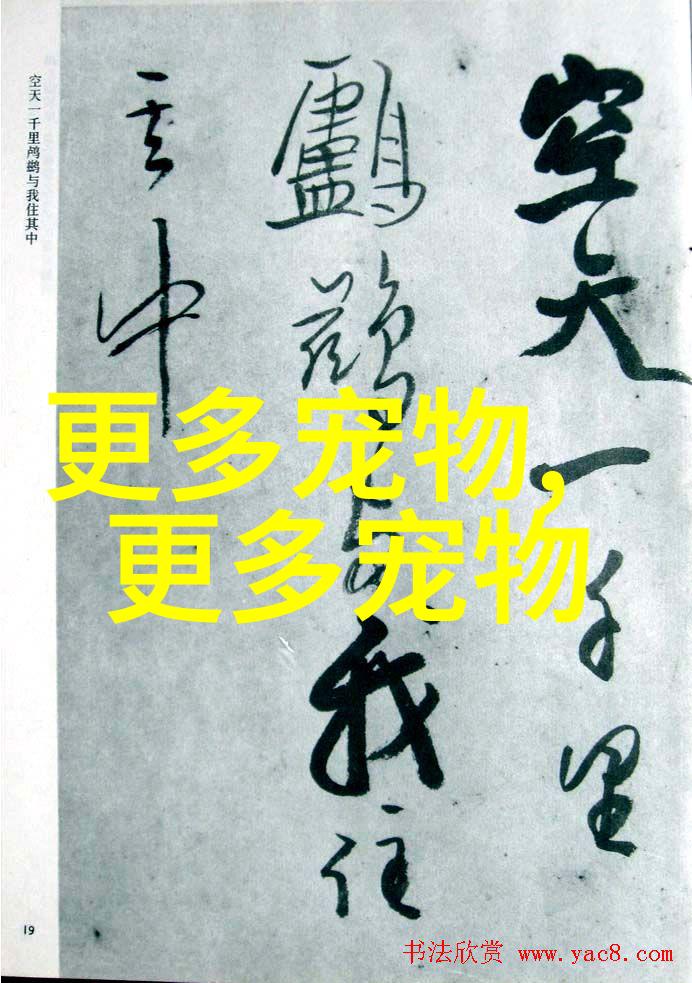 空天一千里
鸕鷀与我住
其中
空天一千里鸬鹚与我住其中
更多宠物,
更多宠物
19
书法欣赏 www.yac8.com